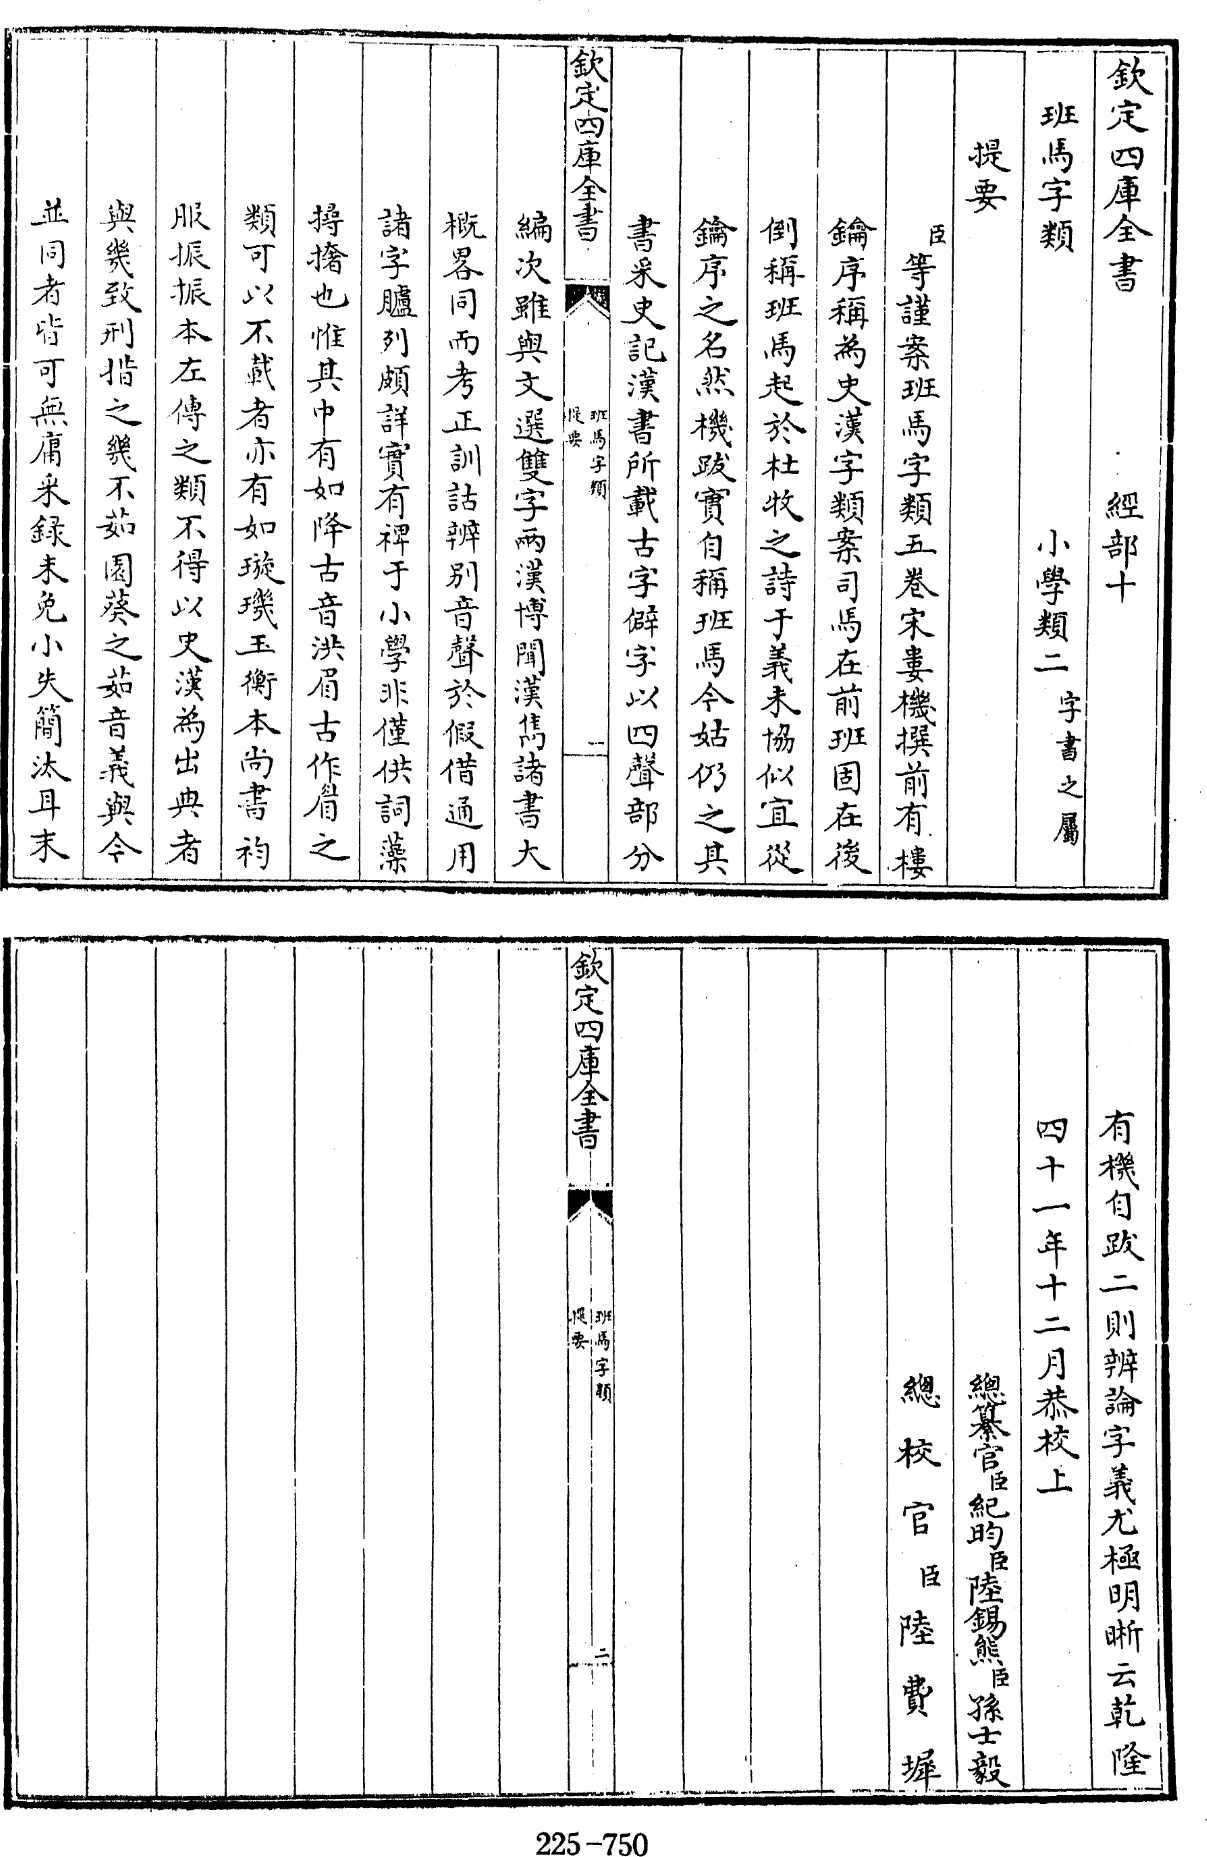 欽定四庫全書 經部十
班馬字類 小學類二 字書之屬
提要
臣等謹案班馬字類五卷宋婁機撰前有樓
鑰序稱為史漢字類案司馬在前班固在後
倒稱班馬起於杜牧之詩于義未協似宜從
鑰序之名然機跋實自稱班馬今姑仍之其
書采史記漢書所載古字僻字以四聲部分
欽定四庫全書 班馬字類 提要 一
編次雖與文選雙字兩漢博聞漢雋諸書大
概畧同而考正訓詁辨别音聲於假借通用
諸字臚列頗詳實有禆于小學非僅供詞藻
撏撦也惟其中有如降古音洪眉古作睂之
類可以不載者亦有如璇璣玉衡本尚書袀
服振振本左傳之類不得以史漢為出典者
與幾致刑措之幾不茹園葵之茹音義與今
並同者皆可無庸采録未免小失簡汰耳末
有機自跋二則辨論字義尤極明晰云乾隆
四十一年十二月恭校上
總纂官臣紀昀臣陸錫熊臣孫士毅
總校官臣陸費墀
欽定四庫全書 班馬字類 提要 二
225-750